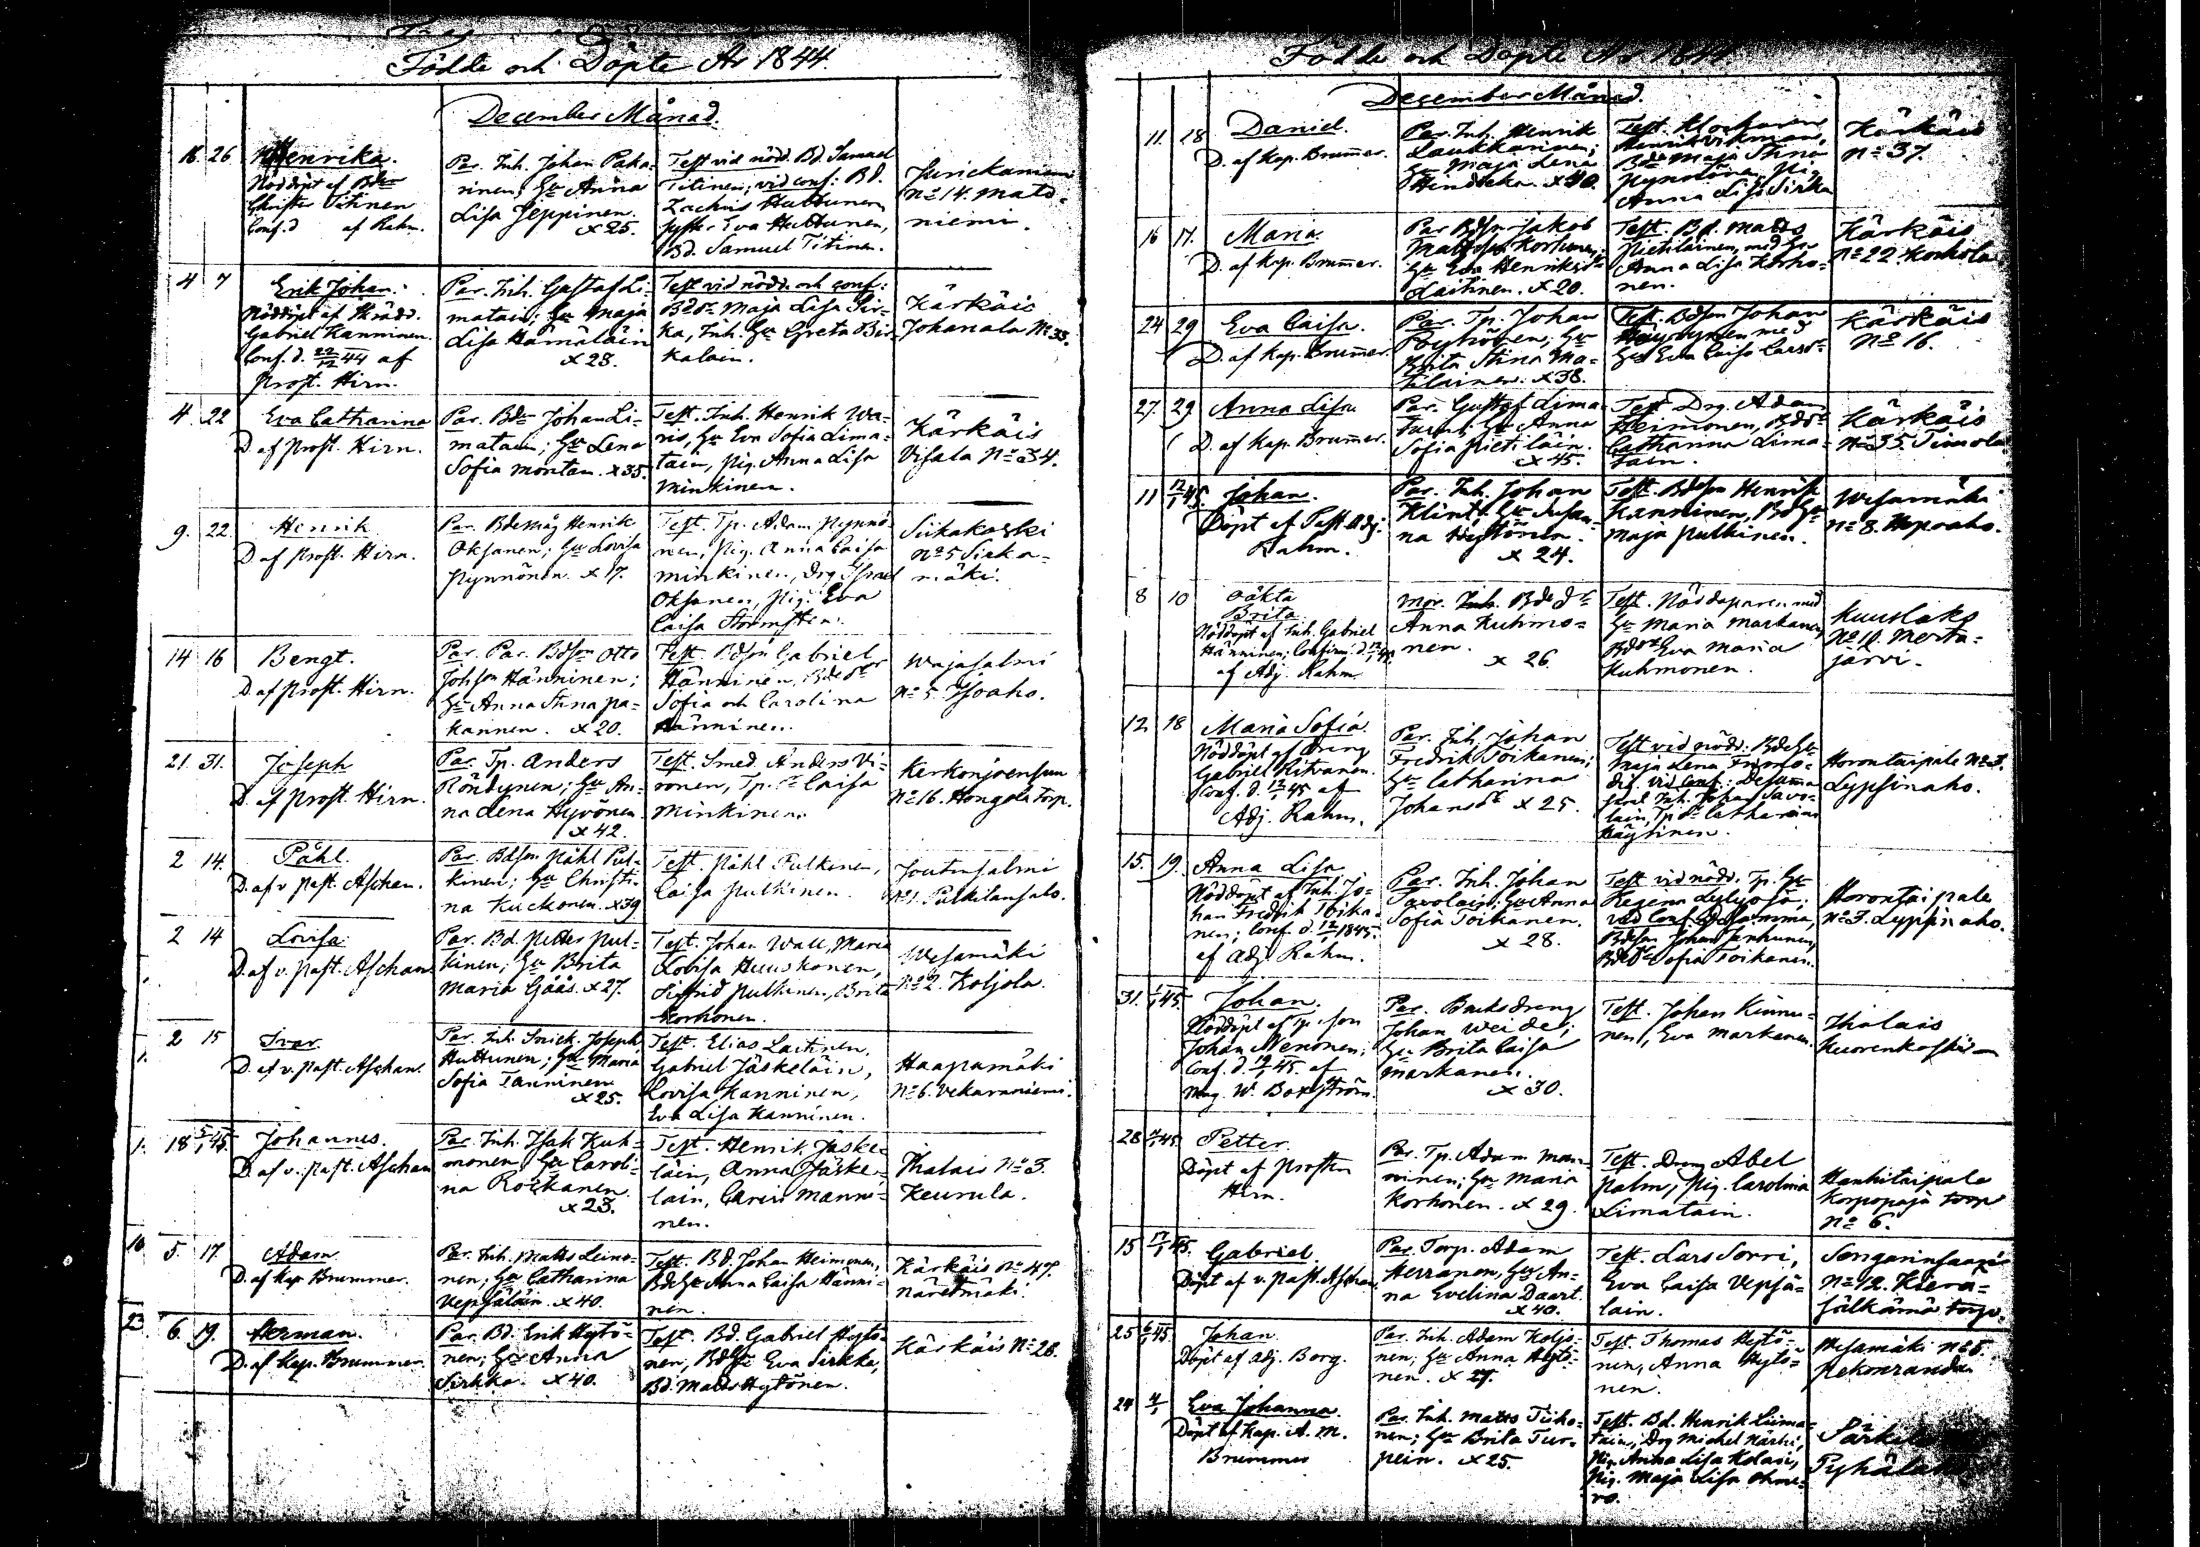 Födde och Döpte År 1844.
December Månad.
18 26 Henrika.
Nöddöpt af Bde
Christer Titinen
Conf. d af Rahm.
Par. Inh. Johan Paka-
rinen; Hu Anna
Lisa Jeppinen.
x 25.
Test vid nödd. Bd. Samuel
Titinen; vid conf: Bd.
Zachris Huttunen,
Syster Eva Huttunen,
Bd. Samuel Titinen.
No 14. Mato-
niemi.
4 7 Erik Johan.
Nöddöpt af
Gabriel Kanninen.
Conf. d. 22/12 44 af
Prost. Hirn.
Par. Inh. Gustaf Li-
matain; Hu Maja
Lisa Hämäläin
x 28.
Test vid nödd. och conf:
Maja Lisa Sir-
ka, Inh. Hu Greta Bir-
kalain.
Kärkäis
Johanala No 33.
4. 22 Eva Catharina
D. af Prost. Hirn.
Par. Bde Johan Li-
matain; Hu Lena
Sofia Montan. x 35.
Test. Inh. Henrik Wa-
ris, Hu Eva Sofia Lima-
tain, Pig. Anna Lisa
Minkinen.
Kärkäis
Visala No 34.
9. 22. Henrik
D. af Prost. Hirn.
Par. Bdemåg Henrik
Oksanen; Hu Lovisa
Pynnönen. x 17.
Test. Tp. Adam Pynnö-
nen, Pig. Anna Caisa
Minkinen, Drg Israel
Oksanen, Pig. Eva
Caisa Stormsten.
Siikakoski
No 5 Sirka-
mäki.
14 16 Bengt.
D. af Prost. Hirn.
Par. Par. Bdson Otto
Johsson Hänninen;
Hu Anna Stina Pa-
kannen. x 20.
Test. Bdson Gabriel
Hänninen, Bdedr
Sofia och Carolina
Hänninen.
Wajasalmi
No 5. Isoaho.
21. 31. Joseph
D. af Prost. Hirn.
Par. Tp. Anders
Röndynen; Hu An-
na Lena Hyvönen
x 42.
Test. Smed. Anders Vi-
ronen, Tp. dr Caisa
Minkinen.
Kerkonjoensuu
No 16. Hongola Torp.
2 14. Påhl.
D. af v. Past. Aschan.
Par. Bdson Påhl Pul-
kinen; Hu Christi-
na Kuckonen. x 39
Test. Påhl Pulkinen,
Caisa Pulkinen.
Joutinsalmi
No 1. Pulkilansalo.
2 14 Lovisa.
D. af v. Past. Aschan
Par. Bd. Petter Pul-
kinen; Hu Brita
Maria Gåås. x 27.
Test. Johan Wall, Maria
Lovisa Huuskonen,
Sigfrid Pulkinen, Brita
Korhonen.
Wesamäki
No 2. Koljola.
2 15 Ivar.
D. af v. Past. Aschan.
Par. Inh. Snick. Joseph
Huttunen; Hu Maria
Sofia Tanninen
x 25.
Test. Elias Laitinen,
Gabriel Jäskeläin,
Lovisa Kanninen,
Eva Lisa Kanninen.
Haapamäki
No 6. Vekaraniemi.
1. 18 5/1 45. Johannes.
D. af v. Past. Aschan
Par. Inh. Isak Kuh-
monen; Hu Caroli-
na Roikanen.
x 23.
Test. Henrik Jäske-
läin, Anna Jäske-
läin, Carin Manni-
nen.
Ihalais No 3.
Keurula.
5. 17. Adam
D. af Kap. Brummer.
Par. Inh. Matts Leino-
nen; Hu Catharina
Vepsäläin. x 40.
Test. Bd. Johan Heimonen,
BdeHu Anna Caisa Hänni-
nen.
Kärkäis No 47.
Näretmäki.
23 6. 19. Herman.
D. af Kap. Brummer.
Par. Bd. Erik Hytö-
nen; Hu Anna
Sirkka. x 40.
Test. Bd. Gabriel Hytö-
nen, BdHu Eva Sirkka,
Bd. Matts Hytönen.
Kärkäis No 28.
Födde och Döpte År 1844.
December Månad.
11. 18 Daniel.
D. af Kap. Brummer.
Par. Inh. Henrik
Laukkarinen;
Hu Maja Lena
x 40.
Test. Klockaren
Henrik Vikman,
Maja Stina
Pynnönen, Pig.
Anna Lisa Sirka
Kärkäis
No 37.
16 17. Maria
D. af Kap. Brummer.
Par Bdson Jakob
Mattsson Korhonen,
Hu Eva Henriksdr
Laitinen. x 20.
Test. Bd. Matts
Pietiläinen, med Hu
Anna Lisa Korho-
nen.
Kärkäis
No 22. Konkola
24 29 Eva Caisa.
D. af Kap. Brummer.
Par. Tp. Johan
Pöyhönen; Hu
Brita Stina Ma-
tilainen. x 38.
Test. Bdson Johan
med
Hu Eva Caisa Larsdr
Kärkäis
No 16.
27. 29 Anna Lisa
D. af Kap. Brummer.
Par. Gustaf Lima-
tain; Hu Anna
Sofia Pietiläin.
x 45.
Test Drg. Adam
Heimonen, Bdedr
Catharina Lima-
tain.
Kärkäis
No 35. Simola
11 12/1 45. Johan.
Döpt af Past. Adj.
Rahm.
Par. Inh. Johan
Klint; Hu Susan-
na Hytönen.
x 24.
Test. Bdeson Henrik
Kanninen, BdHu
Maja Pulkinen.
Wesamäki
No 8. Hepoaho.
8 10 oäkta
Brita
Nöddöpt af Inh. Gabriel
Hänninen; Confirm. d. 12/1 45
af Adj. Rahm
Mor. Inh. Bdedr
Anna Kuhmo-
nen.
x 26.
Test. Nöddöparen med
Hu Maria Markanen,
Bdedr Eva Maria
Kuhmonen.
Kuuslaks
No 10. Merta-
järvi.
12 18 Maria Sofia.
Nöddöpt af Dreng
Gabriel Ritvanen.
Conf. d. 12/1 45 af
Adj. Rahm.
Par. Inh. Johan
Fredrik Toikanen;
Hu Catharina
Johansdr x 25.
Test vid nödd. BdeHu
Maja Lena
vid conf: Desamma
Inh. Johan Savo-
lain, Tpdr Catharina
Käytinen.
Horontaipale No 3.
Lyppinaho.
15. 19. Anna Lisa
Nöddöpt af Inh. Jo-
han Fredrik Toika-
nen; Conf. d. 12/1 1845.
af Adj. Rahm.
Par. Inh. Johan
Savolain; Hu Anna
Sofia Toikanen.
x 28.
Test vid nödd. Tp. Hu
Regena
vid Conf. Desamma,
Bdeson Johan Janhunen,
Bdedr Sofia Toikanen.
Horontaipale
No 3. Lyppinaho.
31. 1/1 45. Johan.
Nöddöpt af Tp. son
Johan Nenonen;
Conf. d. 19/1 45. af
Mag. W. Boxström.
Par. Bruksdreng
Johan Weide;
Hu Brita Caisa
Markanen.
x 30.
Test. Johan Kinnu-
nen, Eva Markanen.
Ihalais
Kuorenkoski
28 45. Petter.
Döpt af Prosten
Hirn.
Par. Tp. Adam Man-
ninen; Hu Maria
Korhonen. x 29.
Test. Dreng Abel
Palm; Pig. Carolina
Limatain.
Hankitaipale
Korpopaja torp
No 6.
15 12/1 45. Gabriel.
Döpt af v. Past. Aschan.
Par. Torp. Adam
Herranen, Hu An-
na Evelina Daart.
x 40.
Test. Lars Sorri,
Eva Caisa Vepsä-
läin.
Sengarinsaari
No 12. Kiera-
jälkämä torp.
25 6/1 45. Johan
Döpt af Adj. Borg.
Par. Inh. Adam Koljo-
nen; Hu Anna Hytö-
nen. x 27.
Test. Thomas Hytö-
nen, Anna Hytö-
nen.
Wesamäki No 5.
Pekonranda
24 Eva Johanna.
Döpt af Kap. A. M.
Brummer
Par. Inh. Matts Tiiho-
nen; Hu Brita Tur-
pein. x 25.
Test. Bd. Henrik Liima-
tain, Drg Michel Närhi,
Pig. Anna Lisa Kolari,
Pig. Maja Lisa Ahve-
ro.